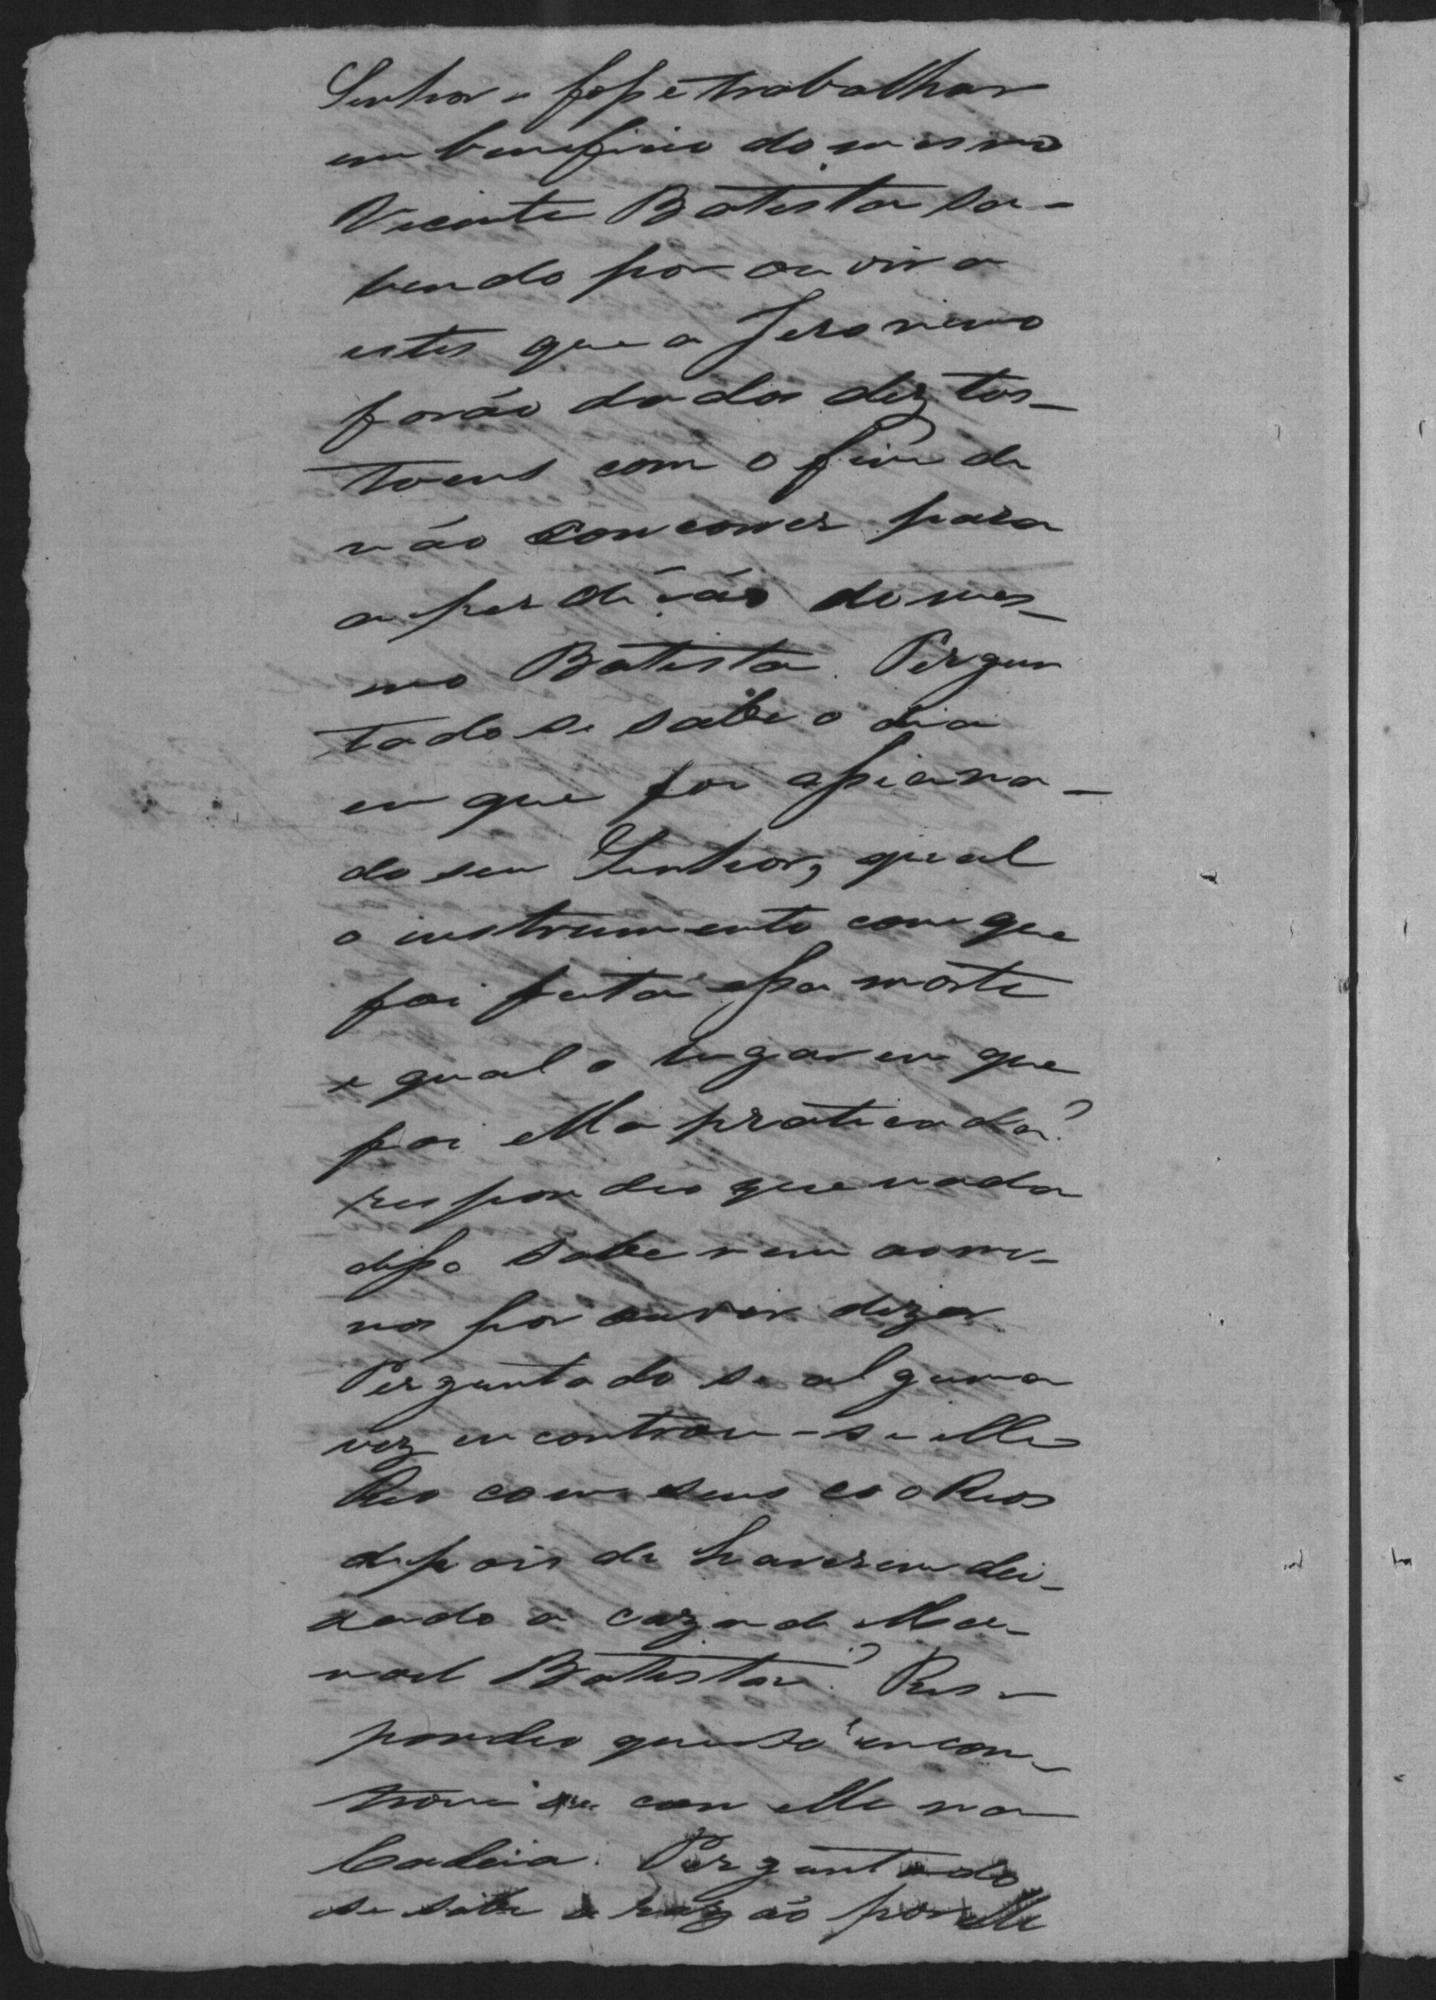 Senhor e fosse trabalhar
em beneficio do mesmo
Vicente Batista sa-
bendo por ouvir a
estes que a Jeronimo
forão dados dez tos-
toens com o fim de
não concorrer para
a perdição do mes-
mo Batista. Pergun
tado se sabe o dia
em que foi assacina-
do seu Senhor, qual
o instrumento com que
foi feita essa morte
e qual o lugar em que
foi ella praticada?
respondeo que nada
disso sabe nem ao me-
nos por ouvir dizer.
Perguntado se alguma
vez encontrou-se elle
Reo com seus co Reos
depois de haverem dei-
xado a caza de Ma-
noel Batista? Res-
pondeo que só encon-
trou se com elle na
Cadeia. Perguntado
se sabe a razão por elle